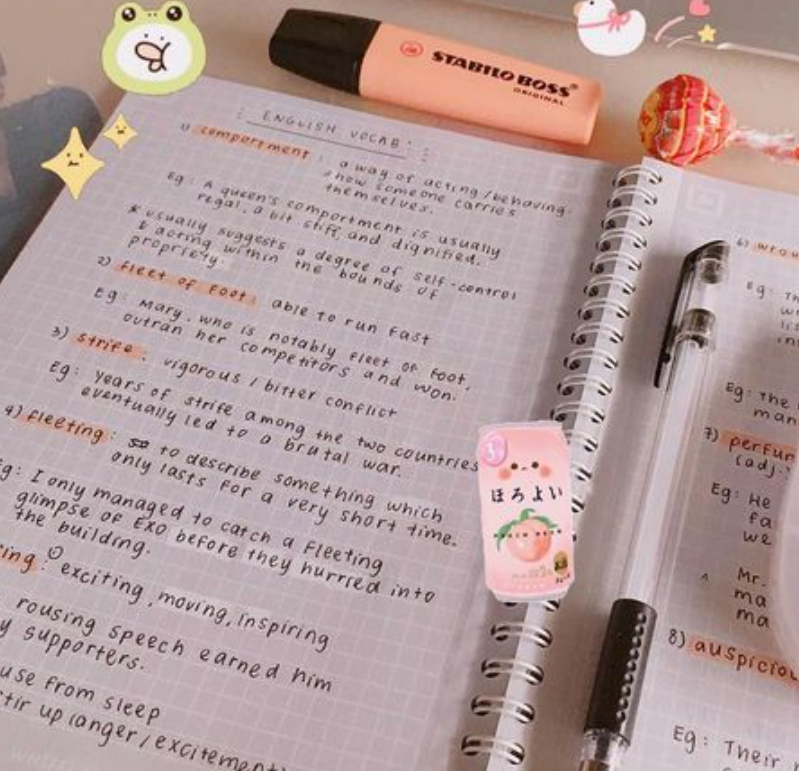 STABILO BOSS
ORIGINAL
ENGLISH VOCAB
1) comportment : a way of acting/behaving.
how someone carries
themselves.
Eg: A queen's comportment is usually
regal, a bit stiff, and dignified.
* usually suggests a degree of self-control
& acting within the bounds of
propriety.
2) fleet of foot: able to run fast
Eg: Mary, who is notably fleet of foot,
outran her competitors and won.
3) strife : vigorous / bitter conflict
Eg: Years of strife among the two countries
eventually led to a brutal war.
4) fleeting : to describe something which
only lasts for a very short time.
Eg: I only managed to catch a fleeting
glimpse of EXO before they hurried into
the building.
ing: exciting, moving, inspiring
rousing speech earned him
y supporters.
use from sleep
tir up (anger/excitement)
ほろよい
6)
Eg: Th
Eg: The
man
7) perfun
(adj.
Eg: He
fa
we
Mr.
ma
ma
8) auspicious
Eg: Their